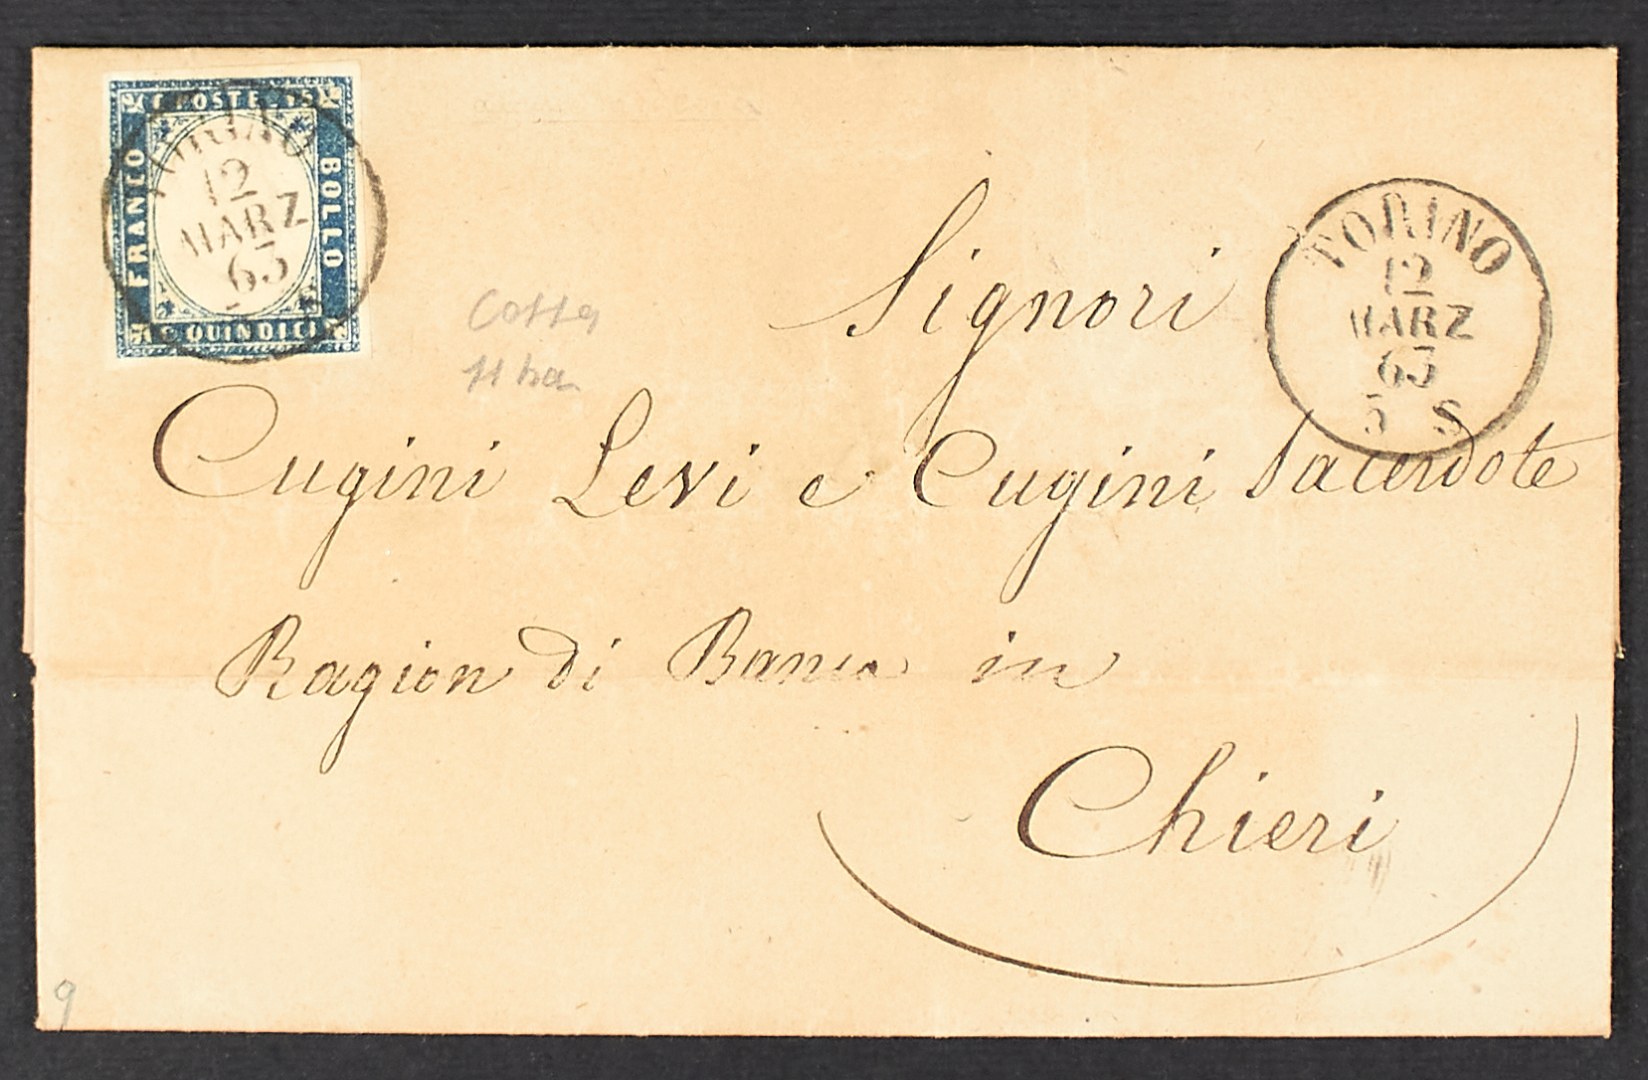 C. POSTE. 15
FRANCO
BOLLO
C. QUINDICI
TORINO
12
MARZ
63
TORINO
12
MARZ
63
5 S
Signori
Cugini Levi e Cugini Sacerdote
Ragion di Banca in
Chieri
9